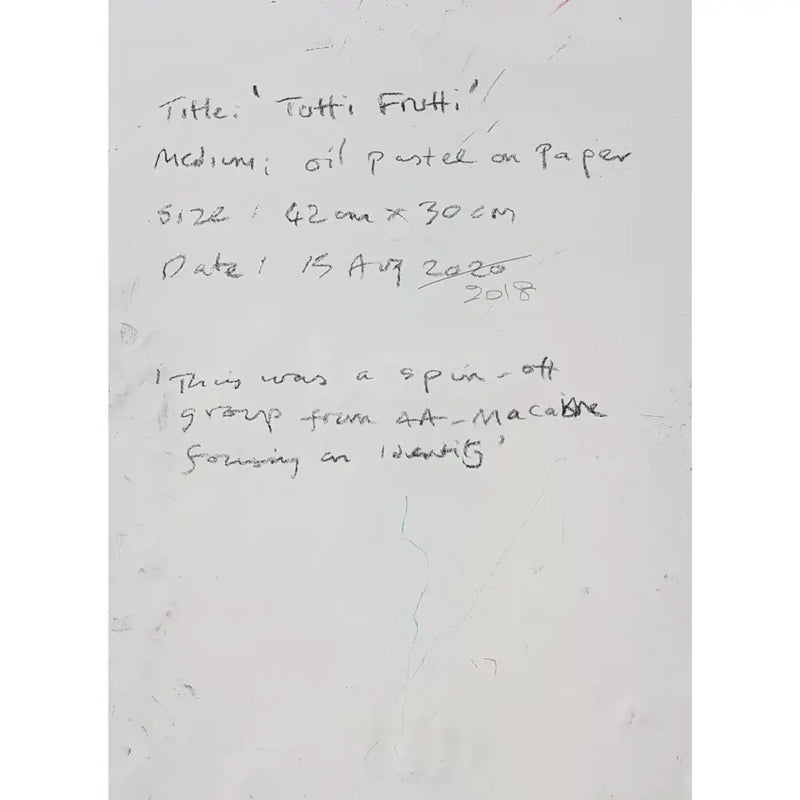 Title: 'Tutti Frutti'
Medium: oil pastel on Paper
Size: 42 cm x 30 cm
Date: 15 Aug 2020
2018
'This was a spin-off
group from AA-Macabre
focusing on Identity'